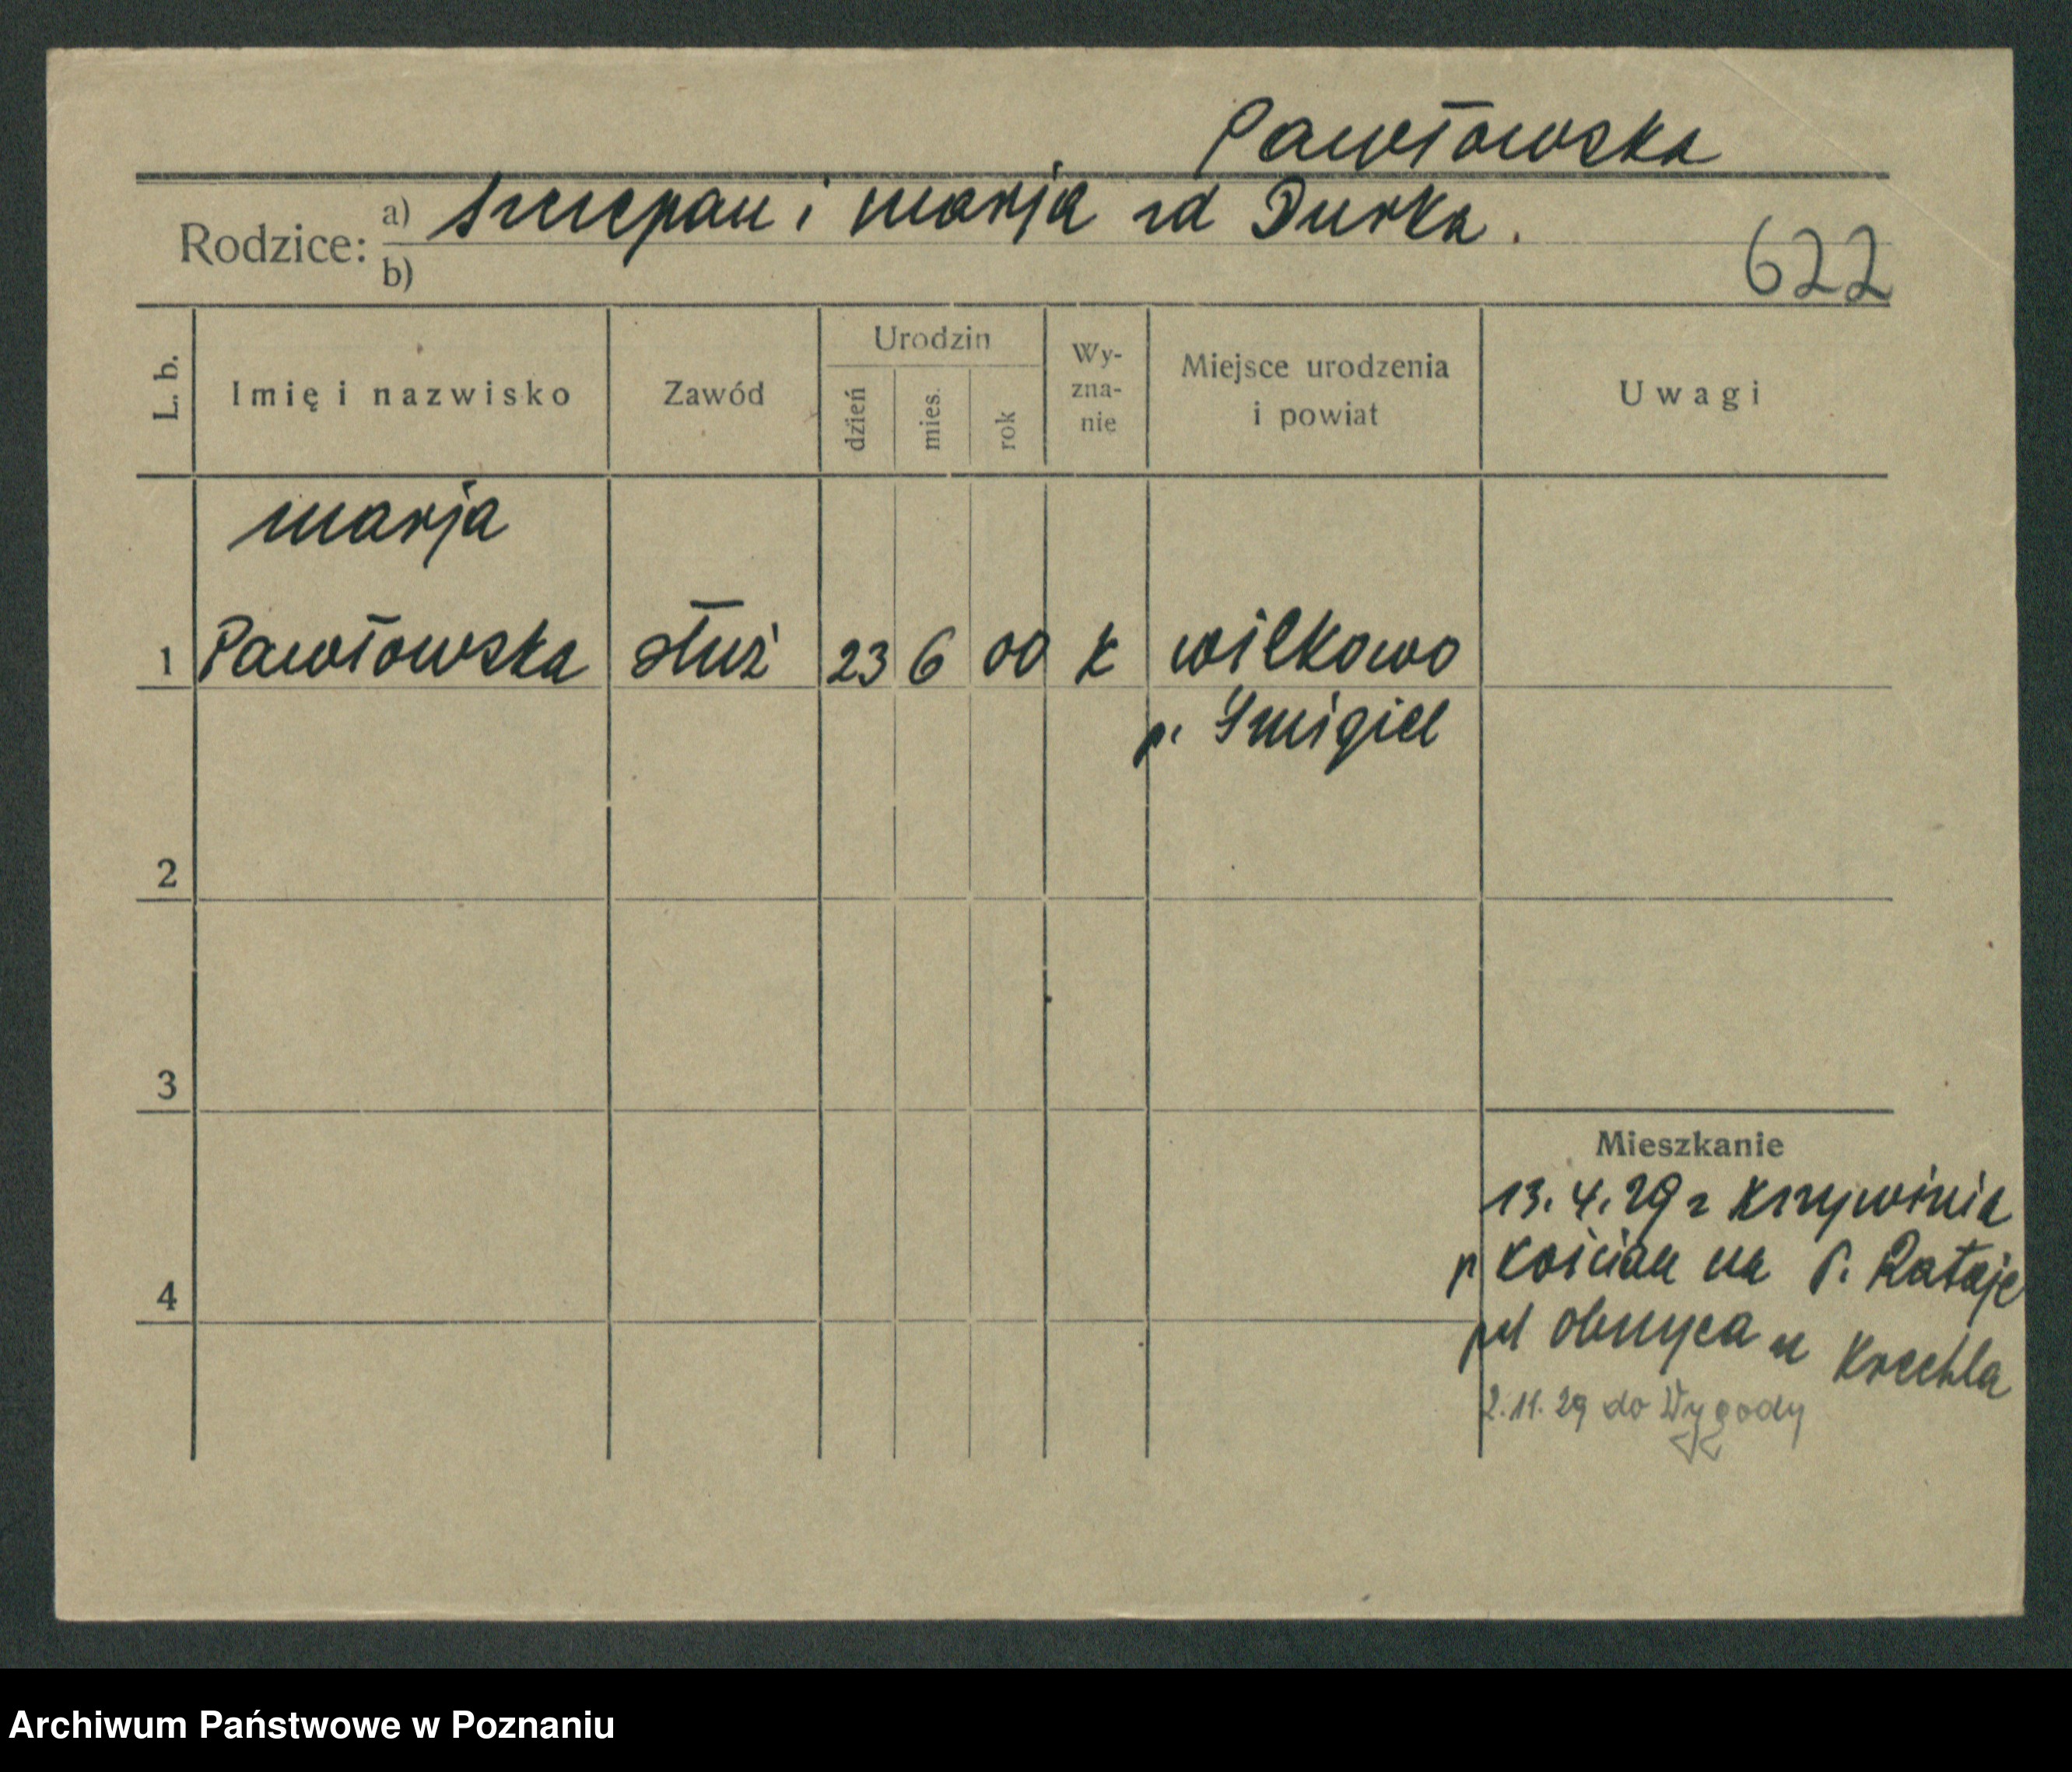 Pawłowska
Rodzice: a) Szczepan i Marja zd Durka.
b)
622
L. b.
Imię i nazwisko
Zawód
Urodzin
dzień
mies.
rok
Wy-
zna-
nie
Miejsce urodzenia
i powiat
Uwagi
Marja
1 Pawłowska służ 23 6 00 k Wilkowo
p. Śmigiel
2
3
Mieszkanie
13.4.29 z Krzywinia
p Kościan na P. Rataje
4
Obrzyca u Krechla
2.11.29 do Wygody
Archiwum Państwowe w Poznaniu